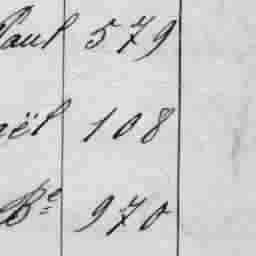 Paul 579
aël 108
Bᵉ 970